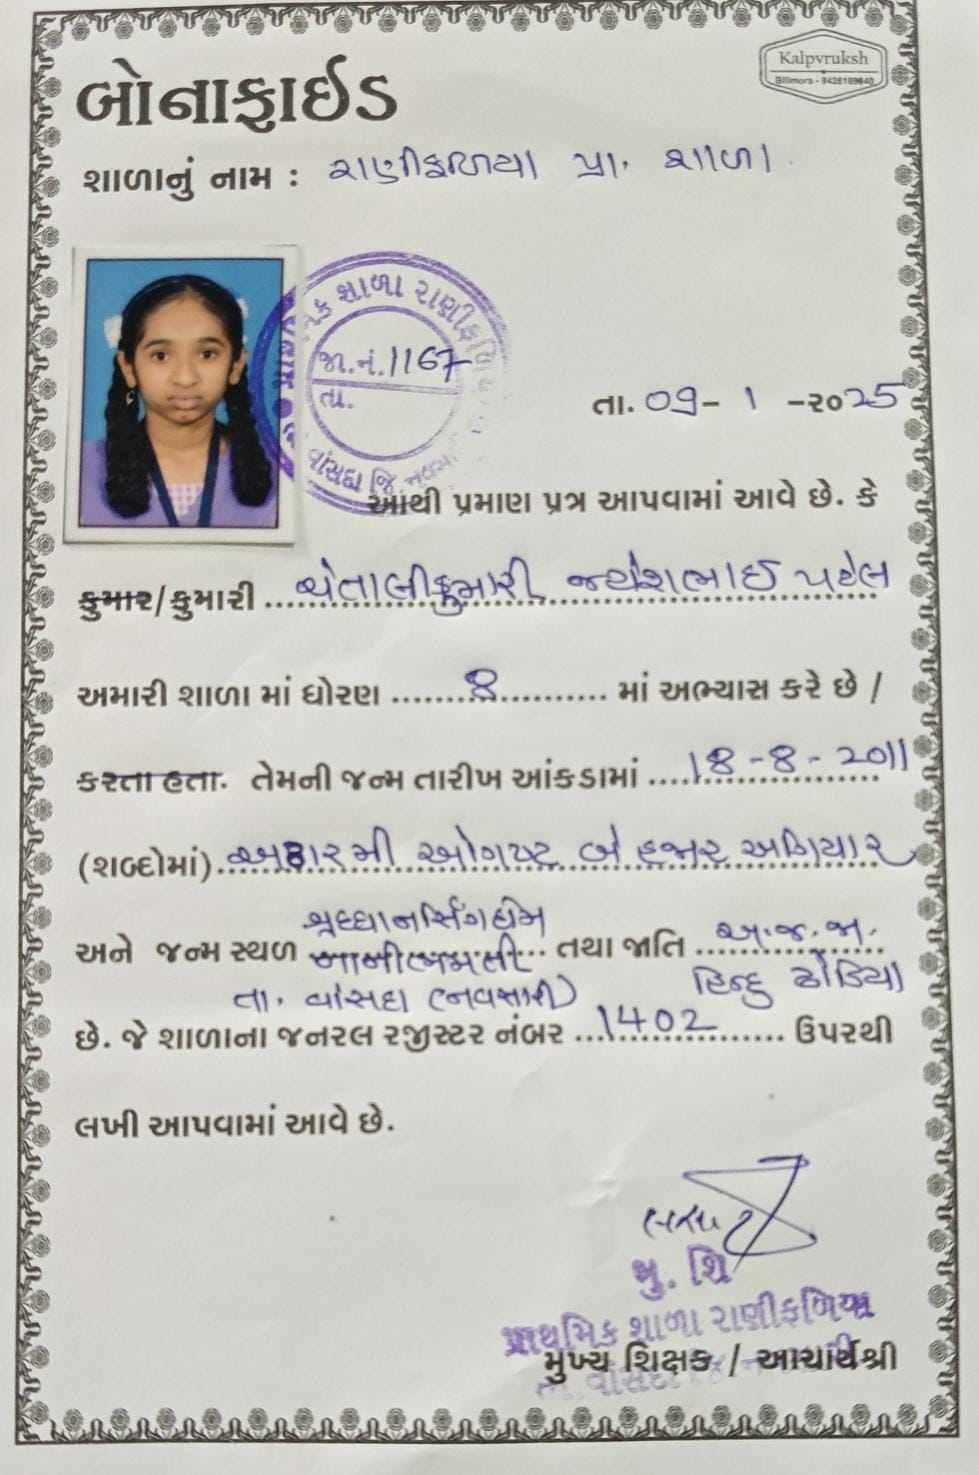 Kalpvruksh
Billimora - 9426189640
બોનાફાઈડ
શાળાનું નામ : રાણીફળિયા પ્રા. શાળા.
શાળા રાણીફળિ
જા.નં. 1167
તા.
વાંસદા જિ. નવસા
તા. 09 - 1 - ૨૦25
આથી પ્રમાણ પત્ર આપવામાં આવે છે. કે
કુમાર/કુમારી ચૈતાલીકુમારી જયેશભાઈ પટેલ
અમારી શાળા માં ધોરણ ........8.......... માં અભ્યાસ કરે છે /
કરતા હતા. તેમની જન્મ તારીખ આંકડામાં ....18-8-2011
(શબ્દોમાં) અઢારમી ઓગષ્ટ બે હજાર અગિયાર
શ્રધ્ધાનર્સિંગહોમ
અને જન્મ સ્થળ તથા જાતિ અ.જ.જા.
તા. વાંસદા (નવસારી) હિન્દુ ઢોડિયા
છે. જે શાળાના જનરલ રજીસ્ટર નંબર ...1402.......... ઉપરથી
લખી આપવામાં આવે છે.
મુ. શિ
પ્રાથમિક શાળા રાણીફળિયા
મુખ્ય શિક્ષક / આચાર્યશ્રી
તા. વાંસદા